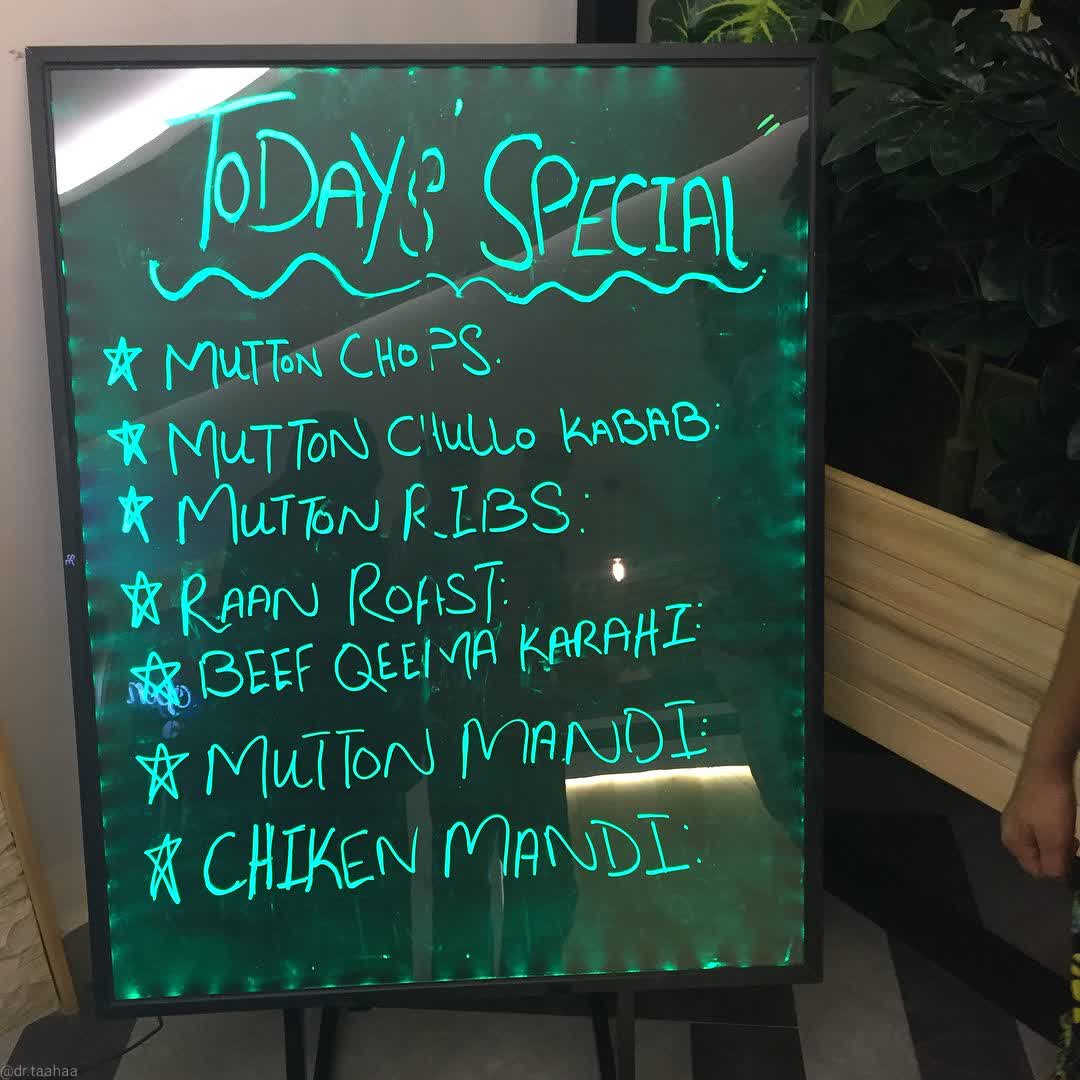 TODAY'S SPECIAL
MUTTON CHOPS.
MUTTON CHULLO KABAB:
MUTTON RIBS:
RAAN ROAST:
BEEF QEEMA KARAHI:
MUTTON MANDI:
CHIKEN MANDI:
@dr.taahaa